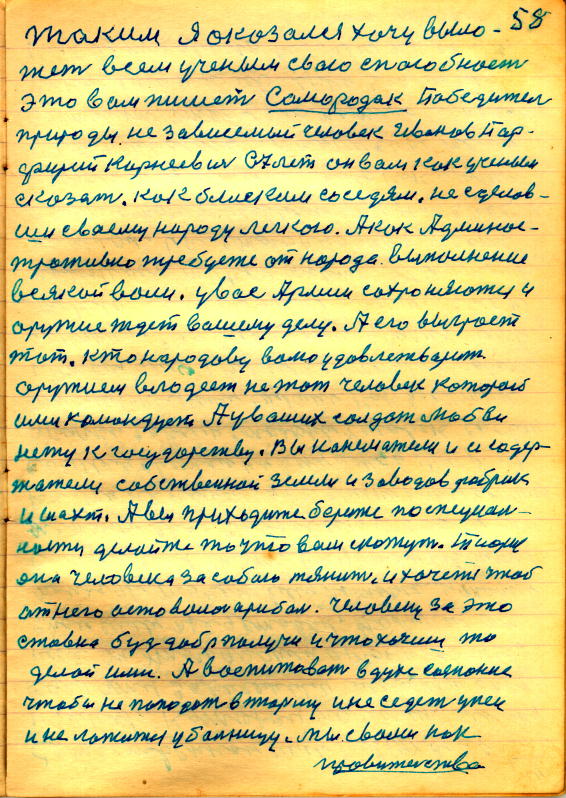 58
таким я оказался хочу выло-
жет всем ученым свою способност
Это вам пишет Самородак Победител
природы не зависемый человек Иванов Пар-
фирий Карнеевич 67 лет он вам как ученым
сказат. как блиским соседям. не сделов-
ши своему народу легкого. А как Админис-
тротивно требуете от народа выполнение
всякой воли. у вас Армии сохроняютца и
оружие ждет вашему делу. А его выгроет
тот. кто народову волю удовлетварит
оружием владеет не тот человек которой
ими командует А у ваших солдат любви
нету к государству. Вы наниматели и содер-
жатели собственной земли и заводов фабрик
и шахт. А вы приходите берите по специал-
ности делайте то что вам скажут.
она человека за собою тянит. и хочет чтоб
от него оставолос прибал. Человеку за это
ставка буд добр получи и что хочиш то
делай ими. А воспитоват в духе состояние
чтобы не пападат в тюрму и не седет у ней
и не ложитца у болницу. мы свами как
правителства